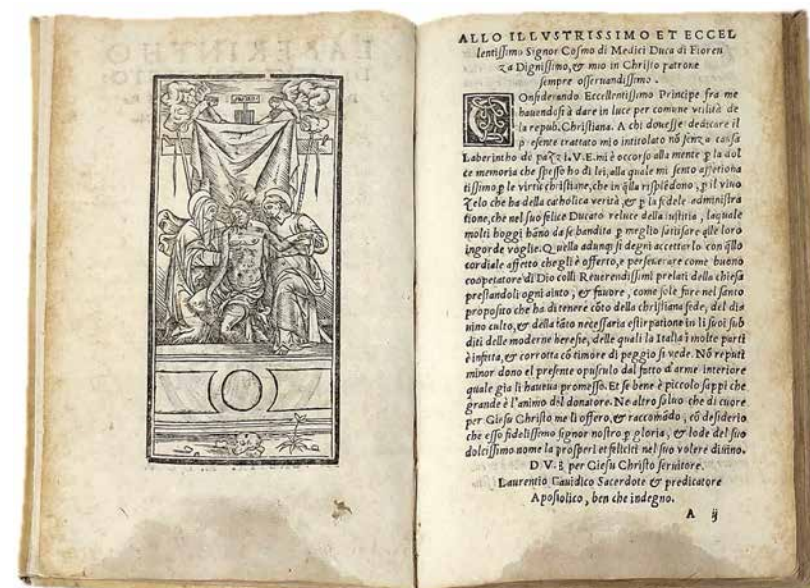 ALLO ILLVSTRISSIMO ET ECCEL
lentissimo Signor Cosmo di Medici Duca di Fioren
za Dignissimo, & mio in Christo patrone
sempre osseruandissimo.
COnsiderando Eccellentissimo Principe fra me
hauendosi à dare in luce per comune vtilità de
la repub. Christiana. A chi douesse dedicare il
presente trattato mio intitolato nõ senza causa
Laberintho de pazzi. V. E. mi è occorso alla mente p̱ la dol
ce memoria che spesso ho di lei, alla quale mi sento affetiona
tissimo p̱ le virtù christiane, che in q̃lla risplẽdono, p̱ il viuo
Zelo che ha della catholica verità, & p̱ la fedele administra
tione, che nel suo felice Ducato reluce della iustitia, laquale
molti hoggi hãno da se bandita p̱ meglio satisfare alle loro
ingorde voglie. Quella adunq; si degni accettarlo con q̃llo
cordiale affetto che gli è offerto, e perseuerare come buono
coopetatore di Dio colli Reuerendissimi prelati della chiesa
prestandoli ogni aiuto, & fauore, come sole fare nel santo
proposito che ha di tenere cõto della christiana fede, del di
uino culto, & della tãto necessaria estirpatione in li suoi sub
diti delle moderne heresie, delle quali la Italia ĩ molte parti
è infetta, & corrotta cõ timore di peggio si vede. Nõ reputi
minor dono el presente opusculo dal fatto d'arme interiore
quale gia li haueua promesso. Et se bene è piccolo sappi che
grande è l'animo del donatore. Ne altro saluo che di cuore
per Giesu Christo me li offero, & raccomãdo, cõ desiderio
che esso fidelissimo signor nostro p̱ gloria, & lode del suo
dolcissimo nome la prosperi et feliciti nel suo volere diuino.
D. V. E. per Giesu Christo seruitore.
Laurentio Dauidico Sacerdote & predicatore
Apostolico, ben che indegno.
A ij